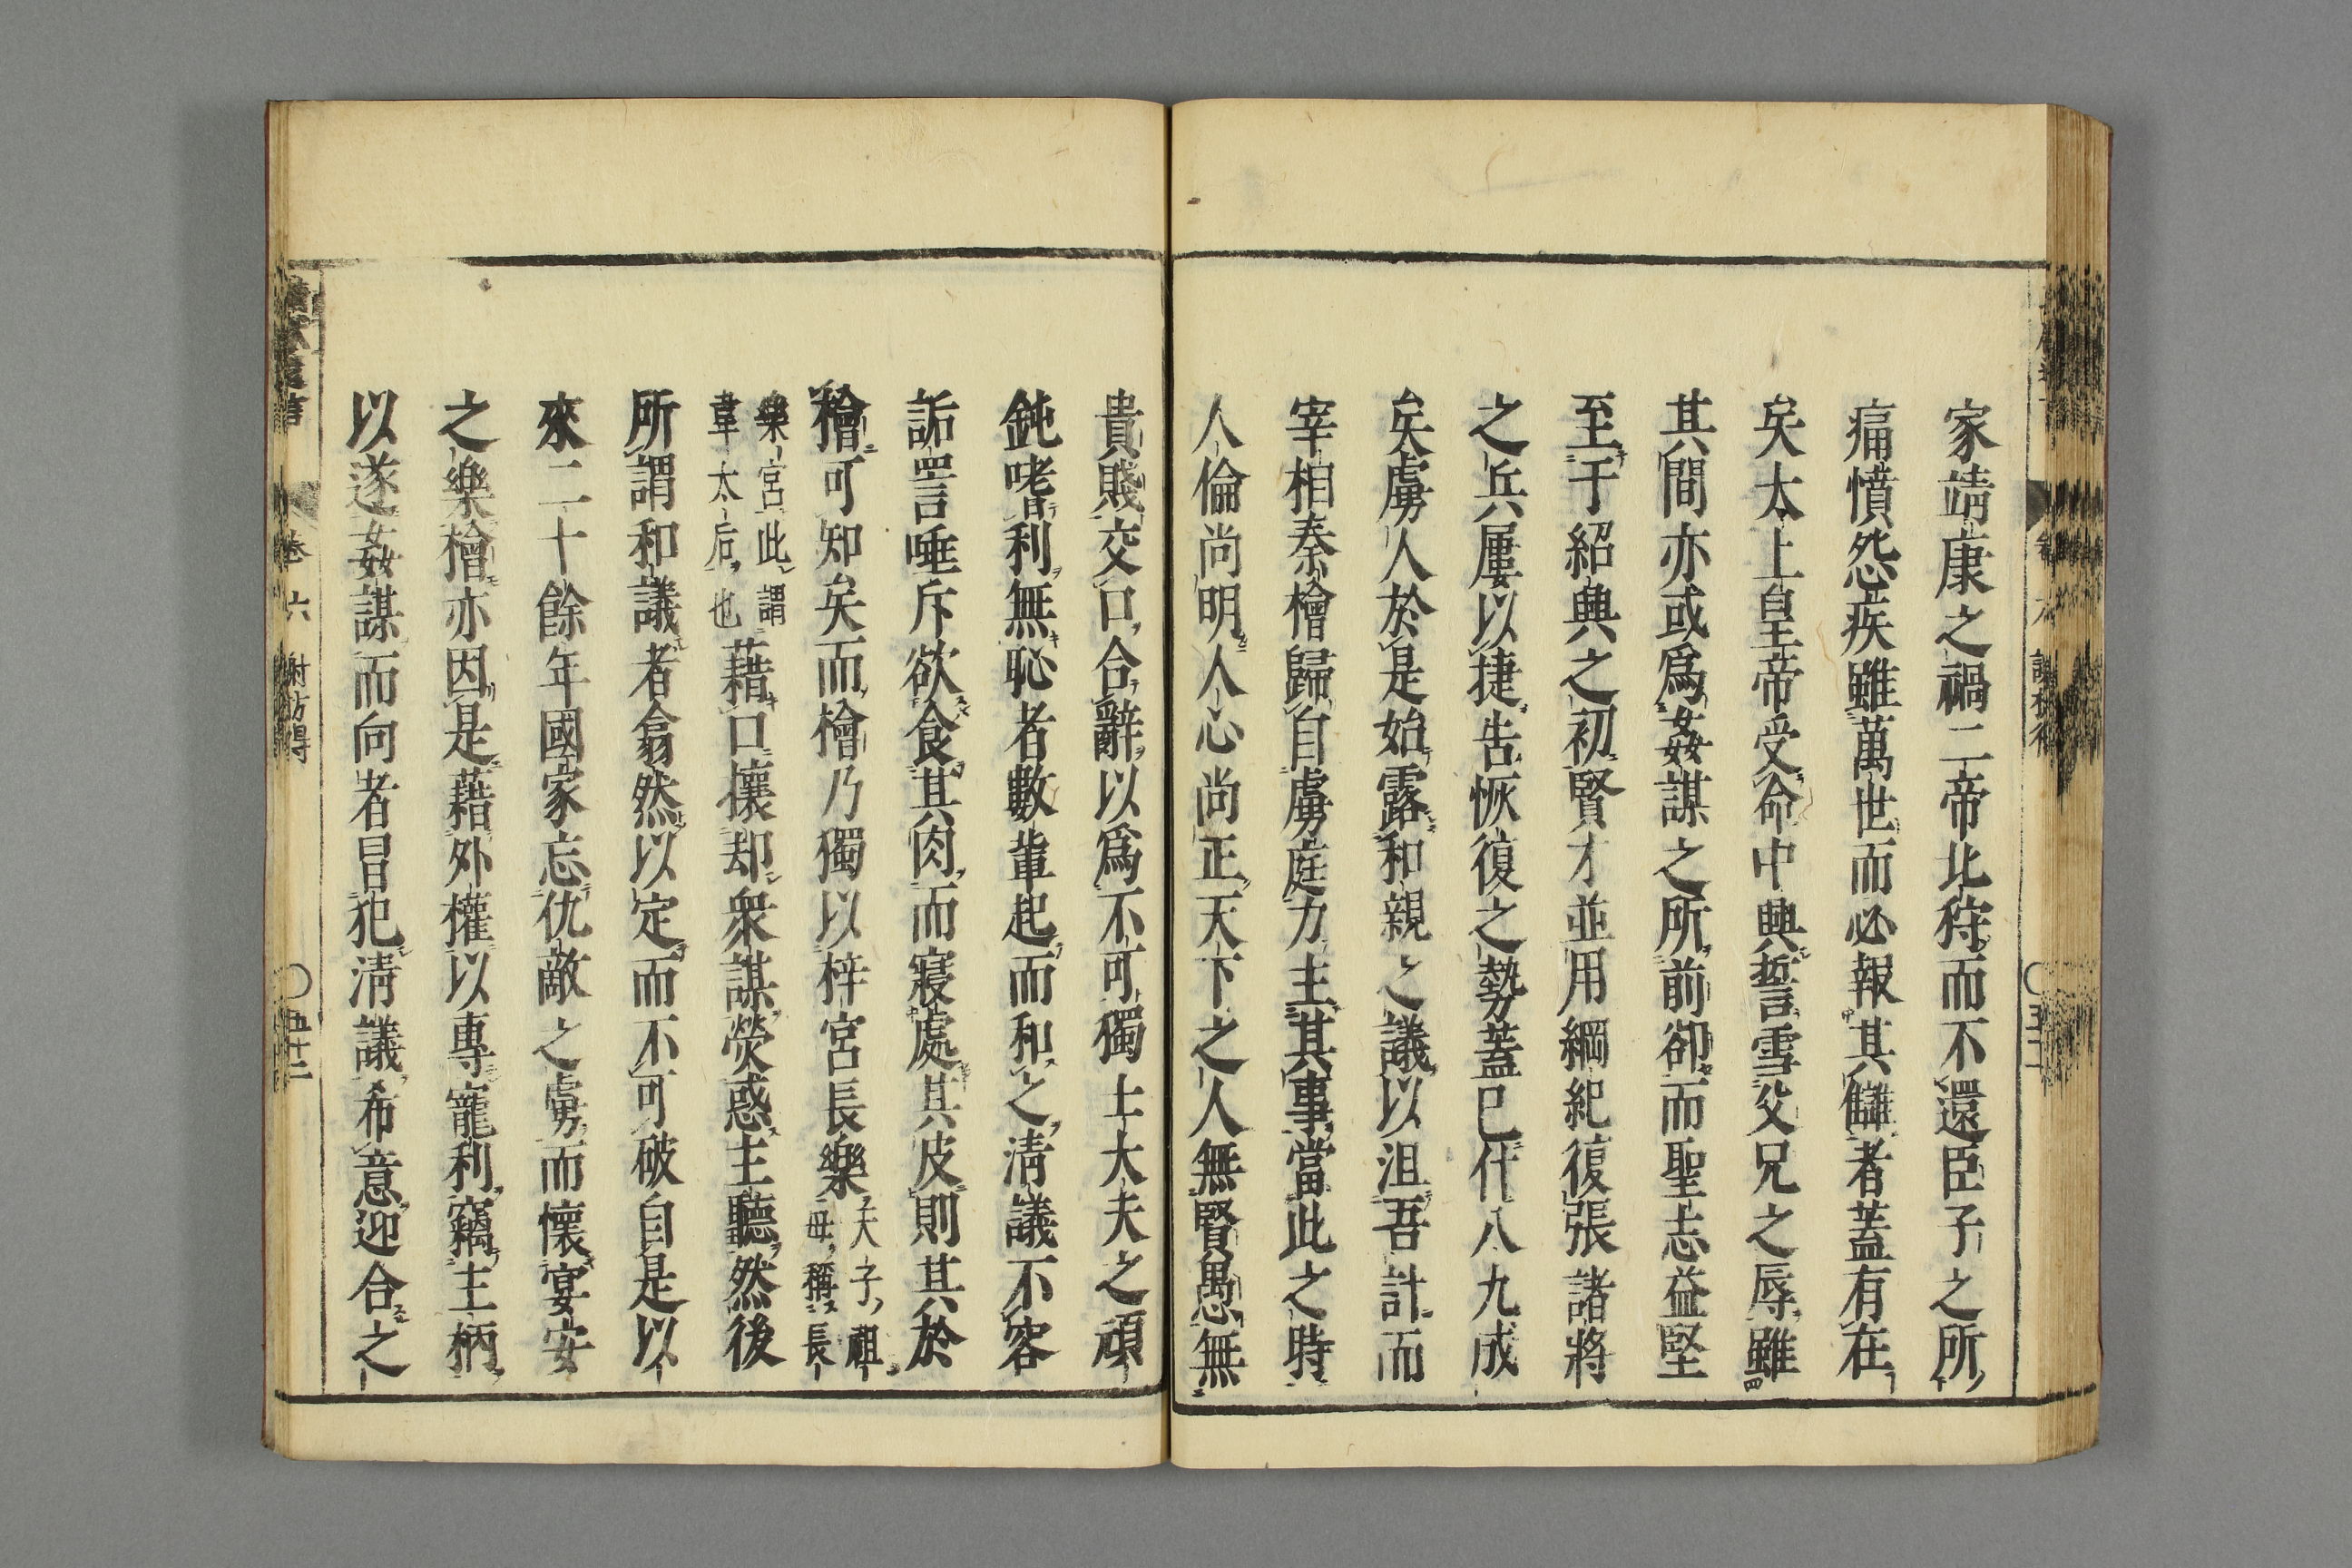 家靖康之禍二帝北狩而不還臣子之所
痛憤怨疾雖萬世而必報其讎者蓋有在
矣太上皇帝受命中興誓雪父兄之辱雖
其間亦或爲姦謀之所前卻而聖志益堅
至于紹興之初賢才並用綱紀復張諸將
之兵屢以捷告恢復之勢蓋已什八九成
矣虜人於是始露和親之議以沮吾計而
宰相秦檜歸自虜庭力主其事當此之時
人倫尚明人心尚正天下之人無賢愚無
貴賤交口合辭以爲不可獨士大夫之頑
鈍嗜利無恥者數輩起而和之清議不容
詬詈唾斥欲食其肉而寢處其皮則其於
檜可知矣而檜乃獨以梓宮長樂天子祖母稱長
樂宮此謂韋太后也藉口攘却衆謀熒惑主聽然後
所謂和議者翕然以定而不可破自是以
來二十餘年國家忘仇敵之虜而懷宴安
之樂檜亦因是藉外權以專寵利竊主柄
以遂姦謀而向者冒犯清議希意迎合之
卷六 謝枋得 五十二